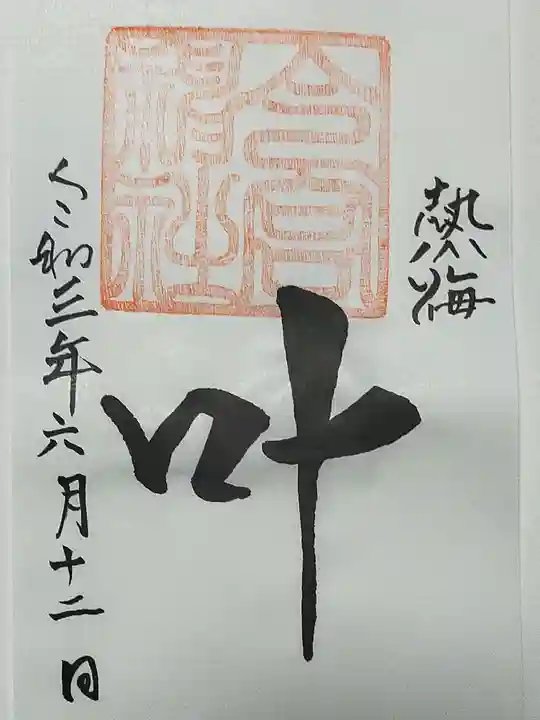 熱海
今宮
神社
叶
令和三年六月十二日